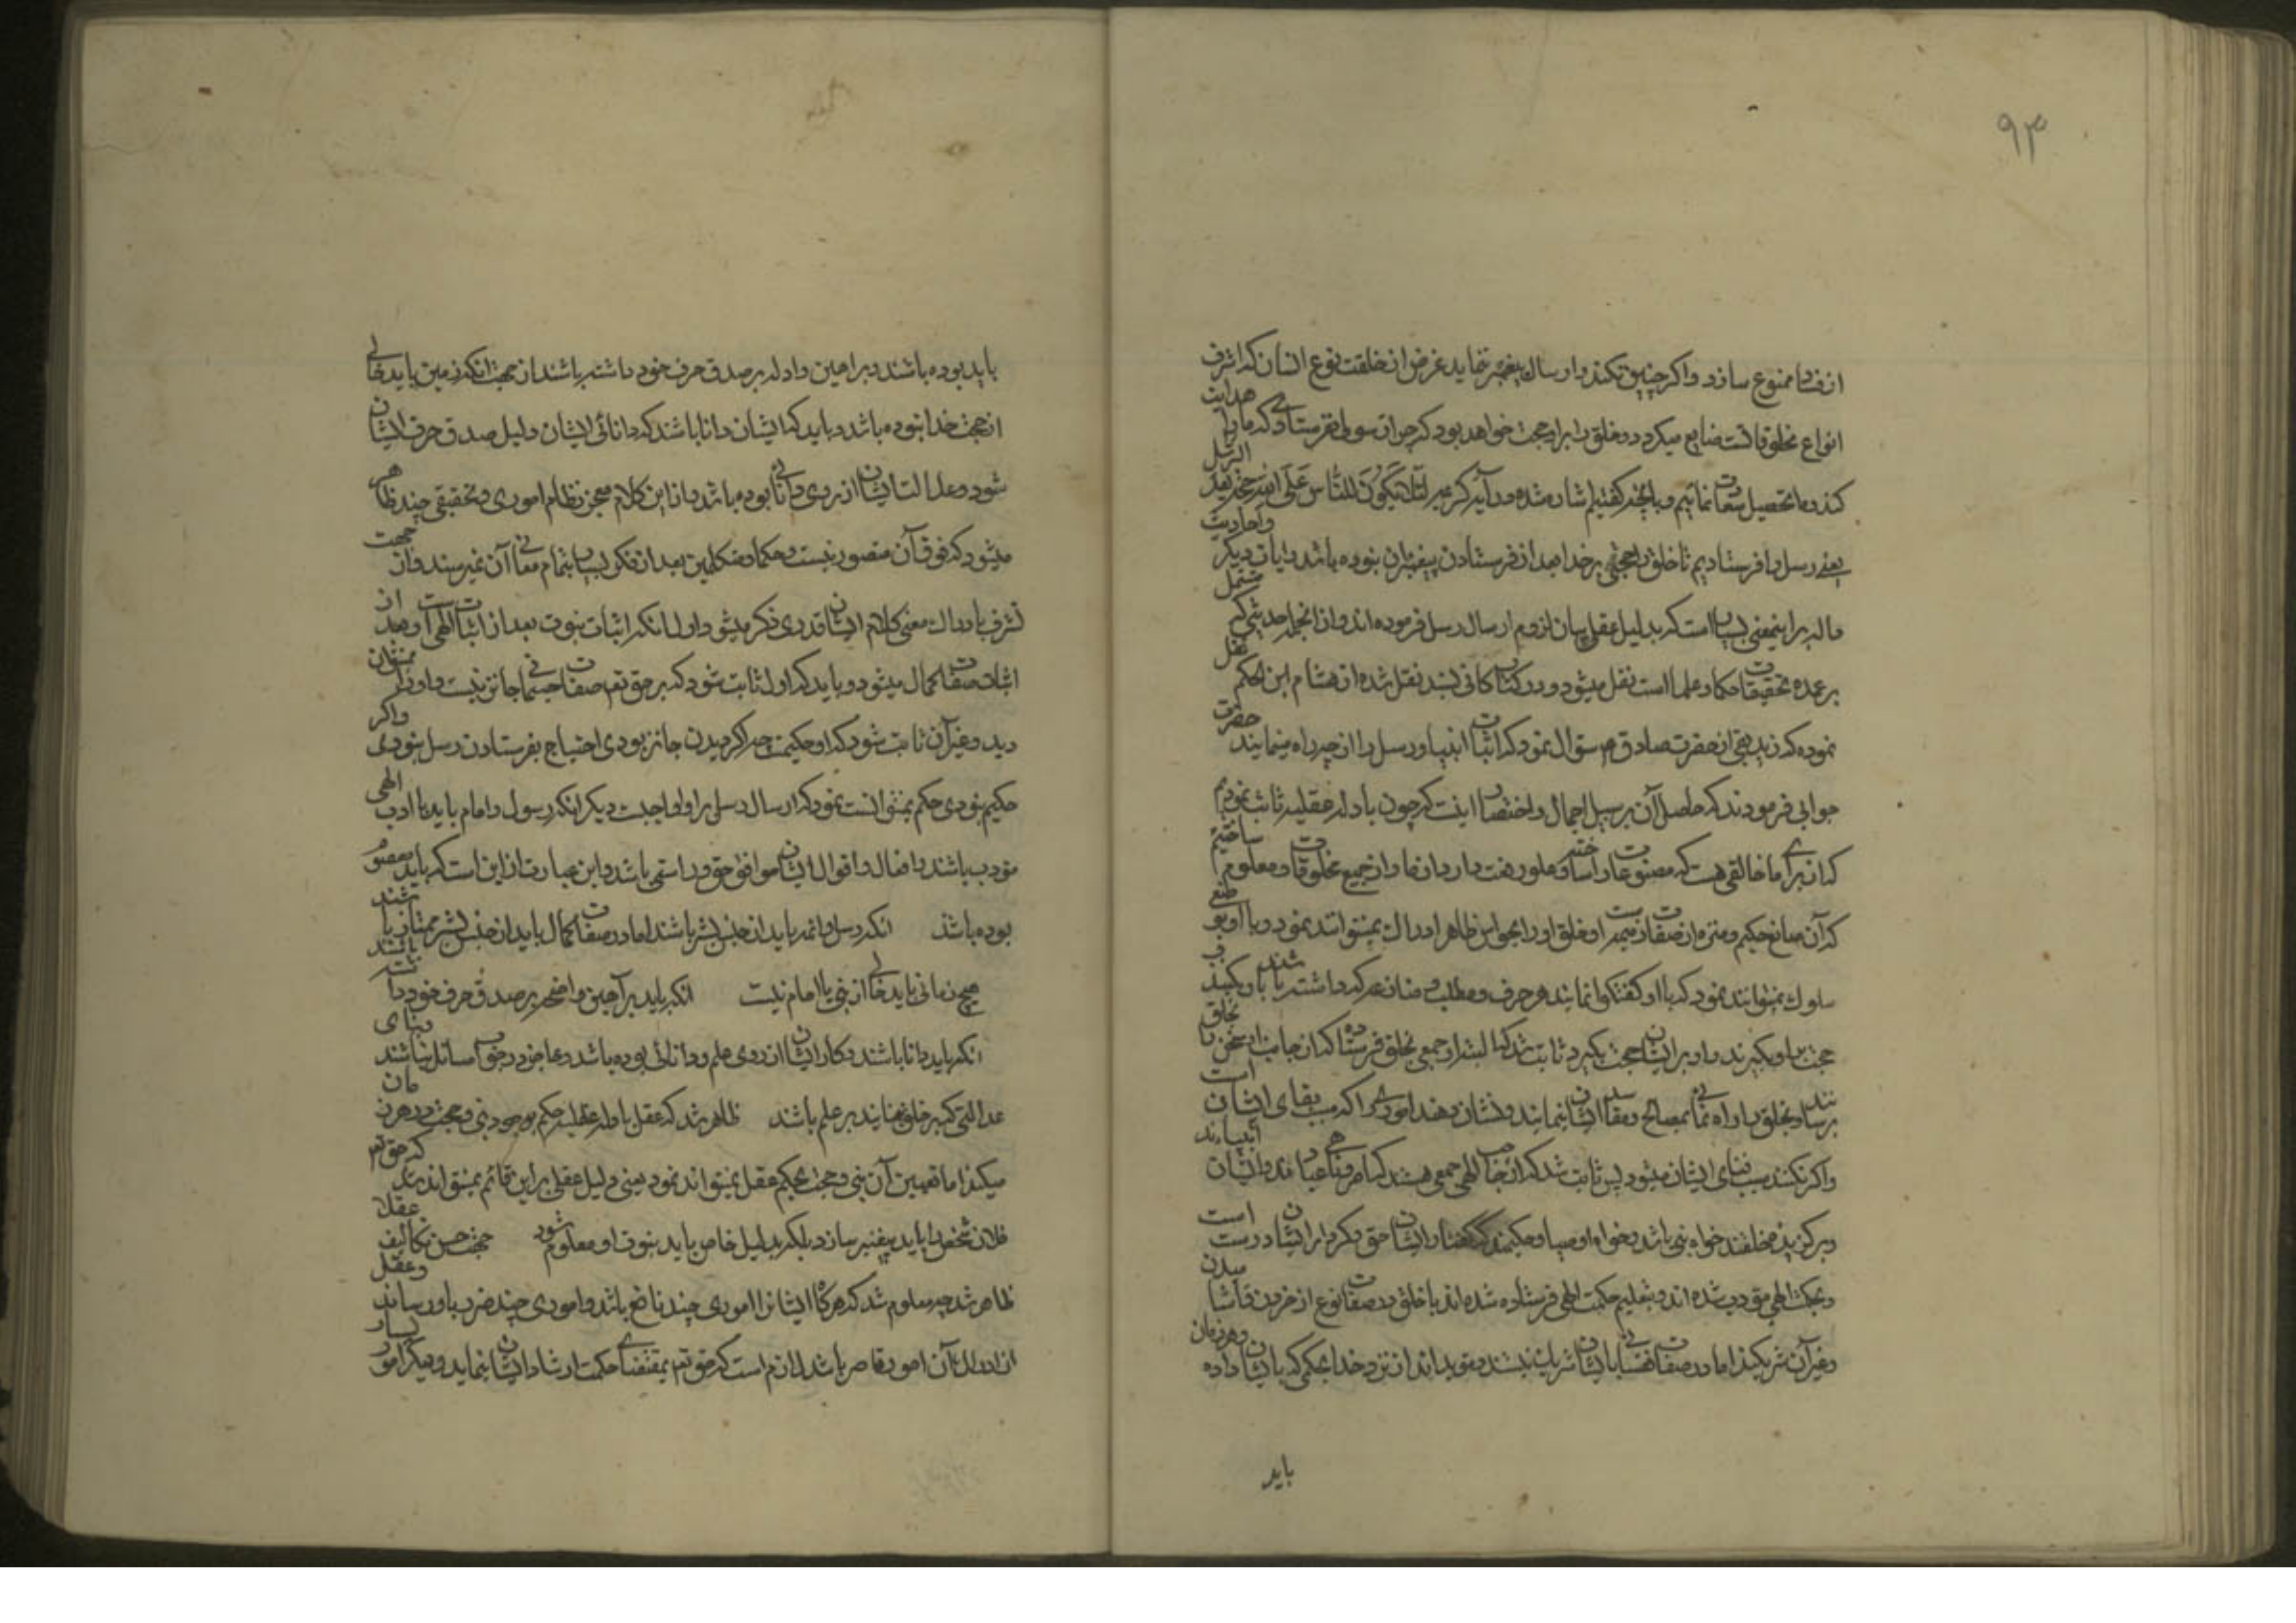 ۹۳
از فساد ممنوع سازد و اکر چنین نکند و ارسال پیغمبر ننماید غرض از خلقت نوع انسان که اشرف
انواع مخلوقاتست ضایع میکردد و خلق را بر او حجت خواهد بود که چرا رسولی نفرستادی که ما را هدایت
کند و ما تحصیل سعادت نمائیم و بانچه کفتیم اشاره شده در آیه کریمه لئلا یکون للناس علی الله حجة بعد الرسل
یعنی رسل را فرستادیم تا خلق را حجتی بر خدا بعد از فرستادن پیغمبران نبوده باشد و ایات دیکر و احادیث
داله بر اینمعنی بسیار است که بدلیل عقلی بیان لزوم ارسال رسل فرموده اند و از انجمله حدیثی که مشتمل
بر عمده تحقیقات حکما و علما است نقل میشود و در کتاب کافی بسند نقل شده از هشام ابن الحکم نقل
نموده که زندیقی از حضرت صادق ع سؤال نمود که اثبات انبیا و رسل را از چه راه مینمایند حضرت
جوابی فرمودند که حاصل آن بر سبیل اجمال و اختصار اینست که چون بادله عقلیه ثابت نمودیم
که از برای ما خالقی هست که مصنوعات را ساخته و علو رفعت دارد از ما و از جمیع مخلوقات و معلوم ساختیم
که آن صانع حکیم و منزه از صفات جسمیه است و خلق او را بحواس ظاهر ادراک نمیتوانند نمود و با او بوضعی
سلوک نمیتوانند نمود که با او کفتکو نمایند و حرف و مطلب و منازعه که داشته باشند با او بکنند و
حجت بر او بکیرند و او بر ایشان حجت بکیرد ثابت شد که البته او جمعی بخلق فرستاده که از جانب او سخن با خلق
برسانند و بخلق او راه نمائی بمصالح و مفاسد ایشان نمایند و نشان دهند اموری را که سبب بقای ایشان است
و اکر نکنند سبب فنای ایشان میشود پس ثابت شد که از جانب الهی جمعی هستند که امر و ناهی عباد اند و ایشان انبیاءند
و برکزیده خلقند خواه نبی باشد و خواه اوصیا و حکیمند کفتار ایشان حق و کردار ایشان درست است
و بحکمت الهی مؤدب شده اند و بتعلیم حکمت الهی فرستاده شده اند با خلق در صفات نوع از خوردن و آشامیدن
و غیر آن شریکند اما در صفات نفسانی با ایشان شریک نیستند و مؤید اند از نزد خدا بحکمی که بایشان داده و هر زمان
باید
باید بوده باشند و براهین و ادله بر صدق حرف خود داشته باشند از جهت انکه زمین باید خالی
از حجت خدا نبوده باشد و باید که ایشان دانا باشند که دانائی ایشان دلیل صدق حرف ایشان
شود و عدالت ایشان از روی دانائی بوده باشد و از این کلام معجز نظام اموری و تحقیقی چند ظاهر
میشود که فوق آن متصور نیست و حکما و متکلمین بعد از فکر بسیار بتمام معانی آن نمیرسند و از جهت
تشرف بادراک معنی کلام ایشان قدری ذکر میشود اول انکه اثبات نبوت بعد از اثبات الهی است و بعد از
اثبات صفات کمال میشود و باید که اول ثابت شود که بر حق تعم صفات جسمانی جایز نیست و او را نمیتوان
دید و غیر آن ثابت شود که او حکیمست چه اکر دیدن جایز بودی احتیاج بفرستادن رسل نبودی و اکر
حکیم نبودی حکم نمیتوانست نمود که ارسال رسل بر او واجبست دیکر انکه رسول و امام باید با ادب الهی
مؤدب باشند و افعال و اقوال ایشان موافق حق و راستی باشد و این عبارت از این است که باید معصوم
بوده باشد انکه رسل و ائمه باید از جنس بشر باشند اما در صفات کمال باید از جنس بشر ممتاز باشند
هیچ زمانی باید خالی از نبی یا امام نیست انکه باید براهین واضحه بر صدق حرف خود داشته باشند
انکه باید دانا باشند و کار ایشان از روی علم و دانائی بوده باشد و عاجز در جواب مسائل نباشند و بنای
عدالتی که بر خلق نمایند بر علم باشد ظاهر شد که عقل بادله عقلیه حکم بوجود نبی و حجت در هر زمان
میکند اما تعیین آن نبی و حجت بحکم عقل نمیتواند نمود یعنی دلیل عقلی بر این قائم نمیتواند شد که حق تعم
فلان شخص را باید پیغمبر سازد بلکه بدلیل خاص باید نبوت او معلوم شود حجت حسن تکالیف عقلا
ظاهر شد چه معلوم شد که هرکاه ایشانرا اموری چند نافع باشد و اموری چند ضرر باو رساند و عقل
از ادراک آن امور قاصر باشد لازم است که حق تعم بمقتضای حکمت ارشاد ایشان نماید و دیکر امور بسیار